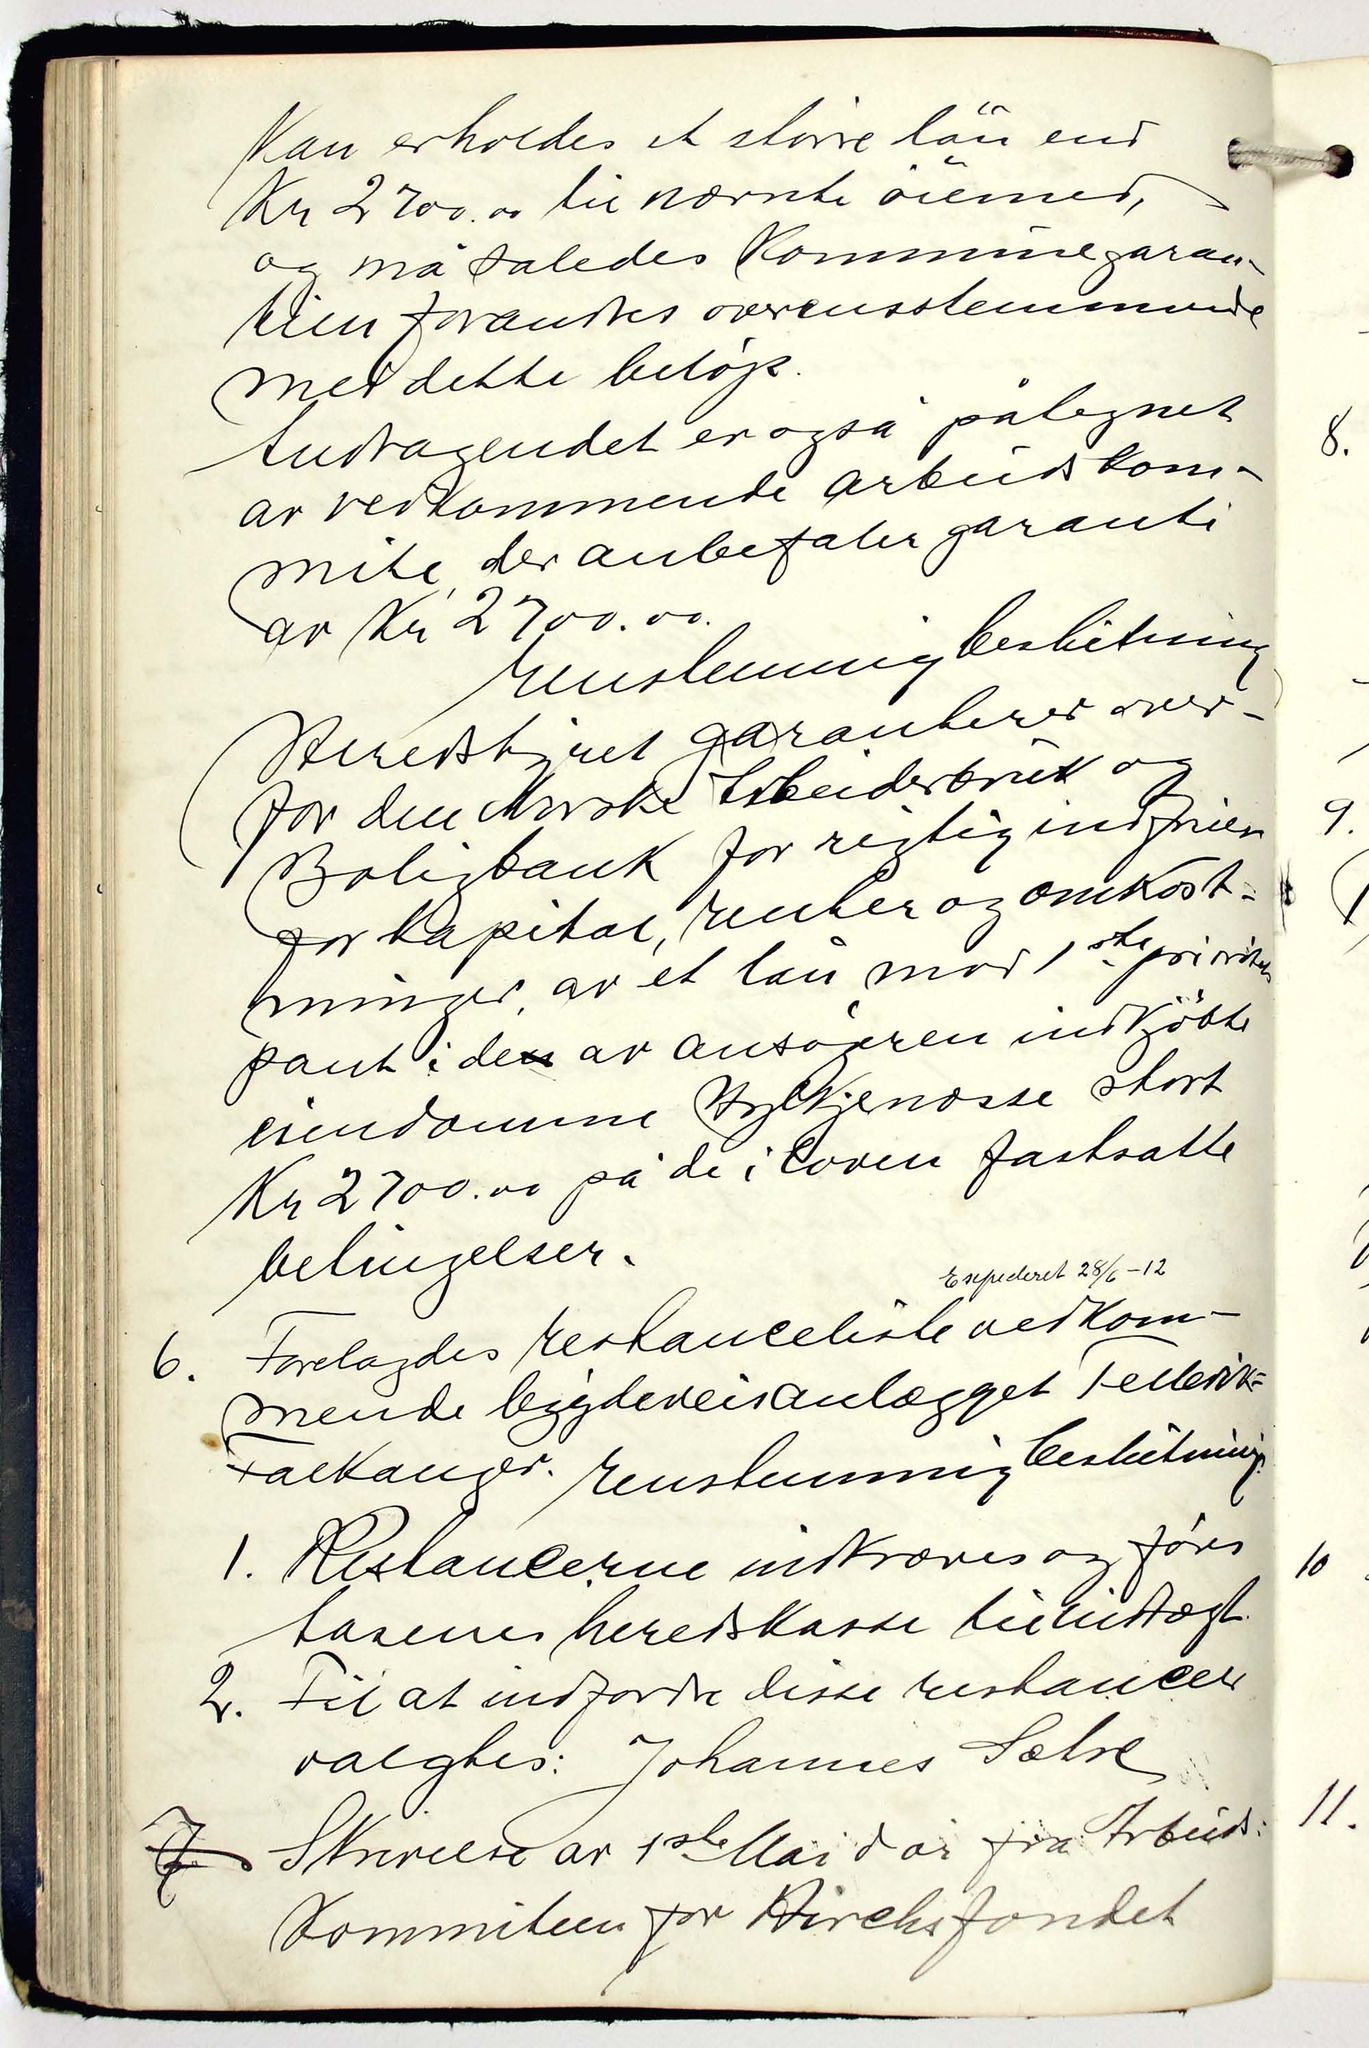 Kan erholdes et större lån end
Kr 2700.00 til nævnte öiemed,
og må således Kommunegaran-
tien forandres overensstemmende
med dette belöp.
Andragendet er også påtegnet
av vedkommende arbeidskom-
mite, der anbefaler garanti
av Kr 2700.00.
Enstemmig beslutning
Heredstyret garanterer over-
for den Norske Arbeiderbruk og
Boligbank for rigtig indfrien
for kapital, renter og omkost-
ninger, av et lån mod 1ste prioritets
pant i den av ansögeren indkjöbte
eiendomme Myklenesse stort
Kr 2700.00 på de i loven fastsatte
betingelser.
Expederet 28/6-12
6. Forelagdes restanceliste vedkom-
mende bygdeveisanlægget Tellevik-
Falkanger. Enstemmig beslutning:
1. Restancerne indkræves og föres
Åsenes heredskasse til indtægt.
2. Til at indfordre disse restancer
valgtes: Johannes Sætre
7 Skrivelse av 1ste Mai d år fra Arbeids:
Kommiteen for Hirchsfondet
8.
9.
10
11.